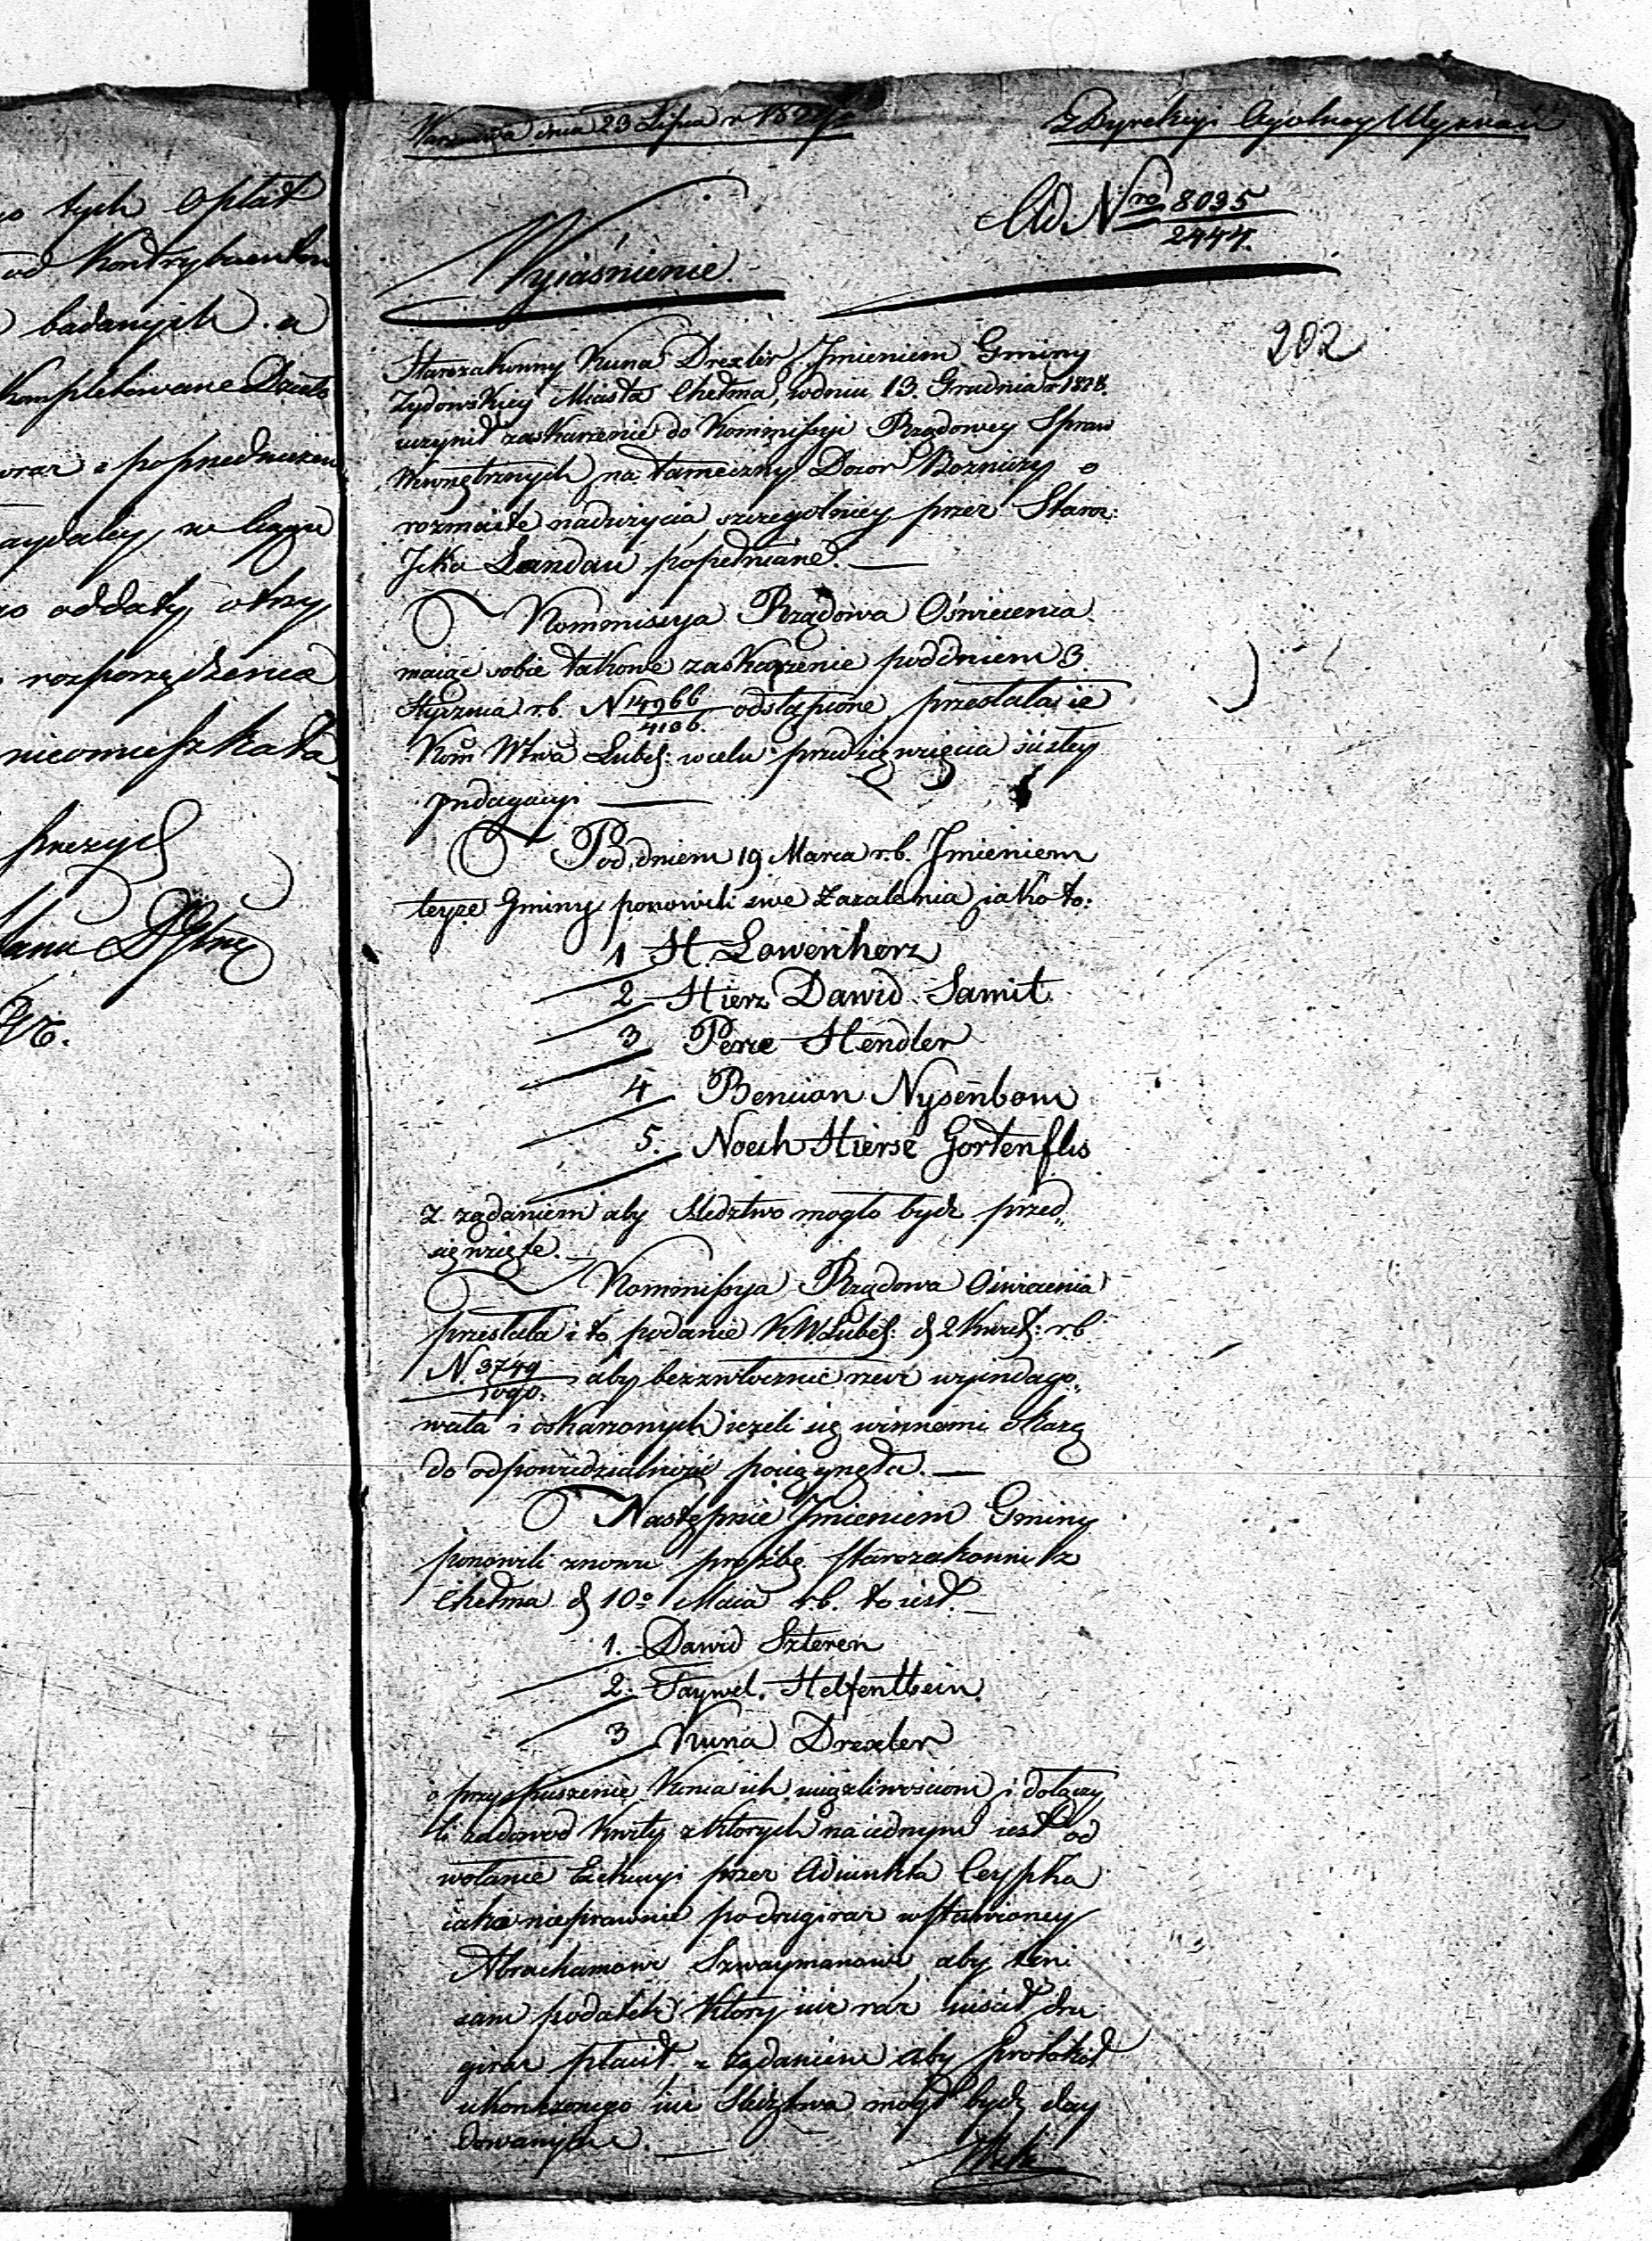 go tych opłat
od Kontrybuentów
badanych. a
Kompletowane Działo
oraz z poprzedniczem
naydaley w ciągu
go oddały otrzy
rozporządzenia
nieomieszkała
Warszawa dnia 23 Lipca r 1829.
Z Dyrekcyi Ogolney Wyznań
Ad Nro 8035
2444.
Wyiaśnienie.
202
Starozakonny Kuna Drexler Jmieniem Gminy
Zydowskiey Miasta Chełma, w dniu 13. Grudnia r. 1828.
uczynił zaskarzenie do Kommissyi Rządowey Spraw
Wewnętrznych na tameczny Dozor Bozniczy o
rozmaite nadużycia szczegolniey przez Staroz:
Jcka Landau popełniane. —
Kommissya Rządowa Oświecenia
maiąc sobie takowe zaskarzenie pod dniem 3.
Stycznia r. b. N 14966
4136. odstąpione, przesłała ie
Kom Wtwa Lubel: w celu przedsięwzięcia ścisłey
jndagacyi —
Pod dniem 19 Marca r. b. Jmieniem
teyze Gminy ponowili swe Zazalenia jako to:
1 H. Lowenherz
2 Hierz Dawid Samit
3 Perec Hendler
4 Bencian Nysenbom
5. Noech Hierse Gortenflis
z ządaniem aby Sledztwo mogło bydz przed„
sięwzięte. —
Kommissya Rządowa Oświecenia
przesłała i to podanie KWLubel: d 2 Kwiet: r. b
N. 3749
1090. aby bezzwłocznie rzecz wyindago„
wała i oskarzonych iezeli się winnemi okazą
do odpowiedzialności pociągnęła. —
Następnie Jmieniem Gminy
ponowili znowu prośbę starozakonni z
Chełma d 10o Maia r. b. to iest. —
1. Dawid Szteren
2. Faywel. Helfentbein.
3 Kuna Drexler
o przyspieszenie Konca ich uciązliwościom i dołączy
li za dowod Kwity z ktorych na iednym iest od
wołanie Exekucyi przez Adiunkta Cerpka
iako nieprawnie po drugi raz wstawioney
Abrachamowi Szwaymanowi aby ten
sam podatek ktory iuz raz uiścił dru
gi raz płacił. z ządaniem aby Protokół
ukonczonego iuz Sledztwa mogł bydz zday
dowanym. —